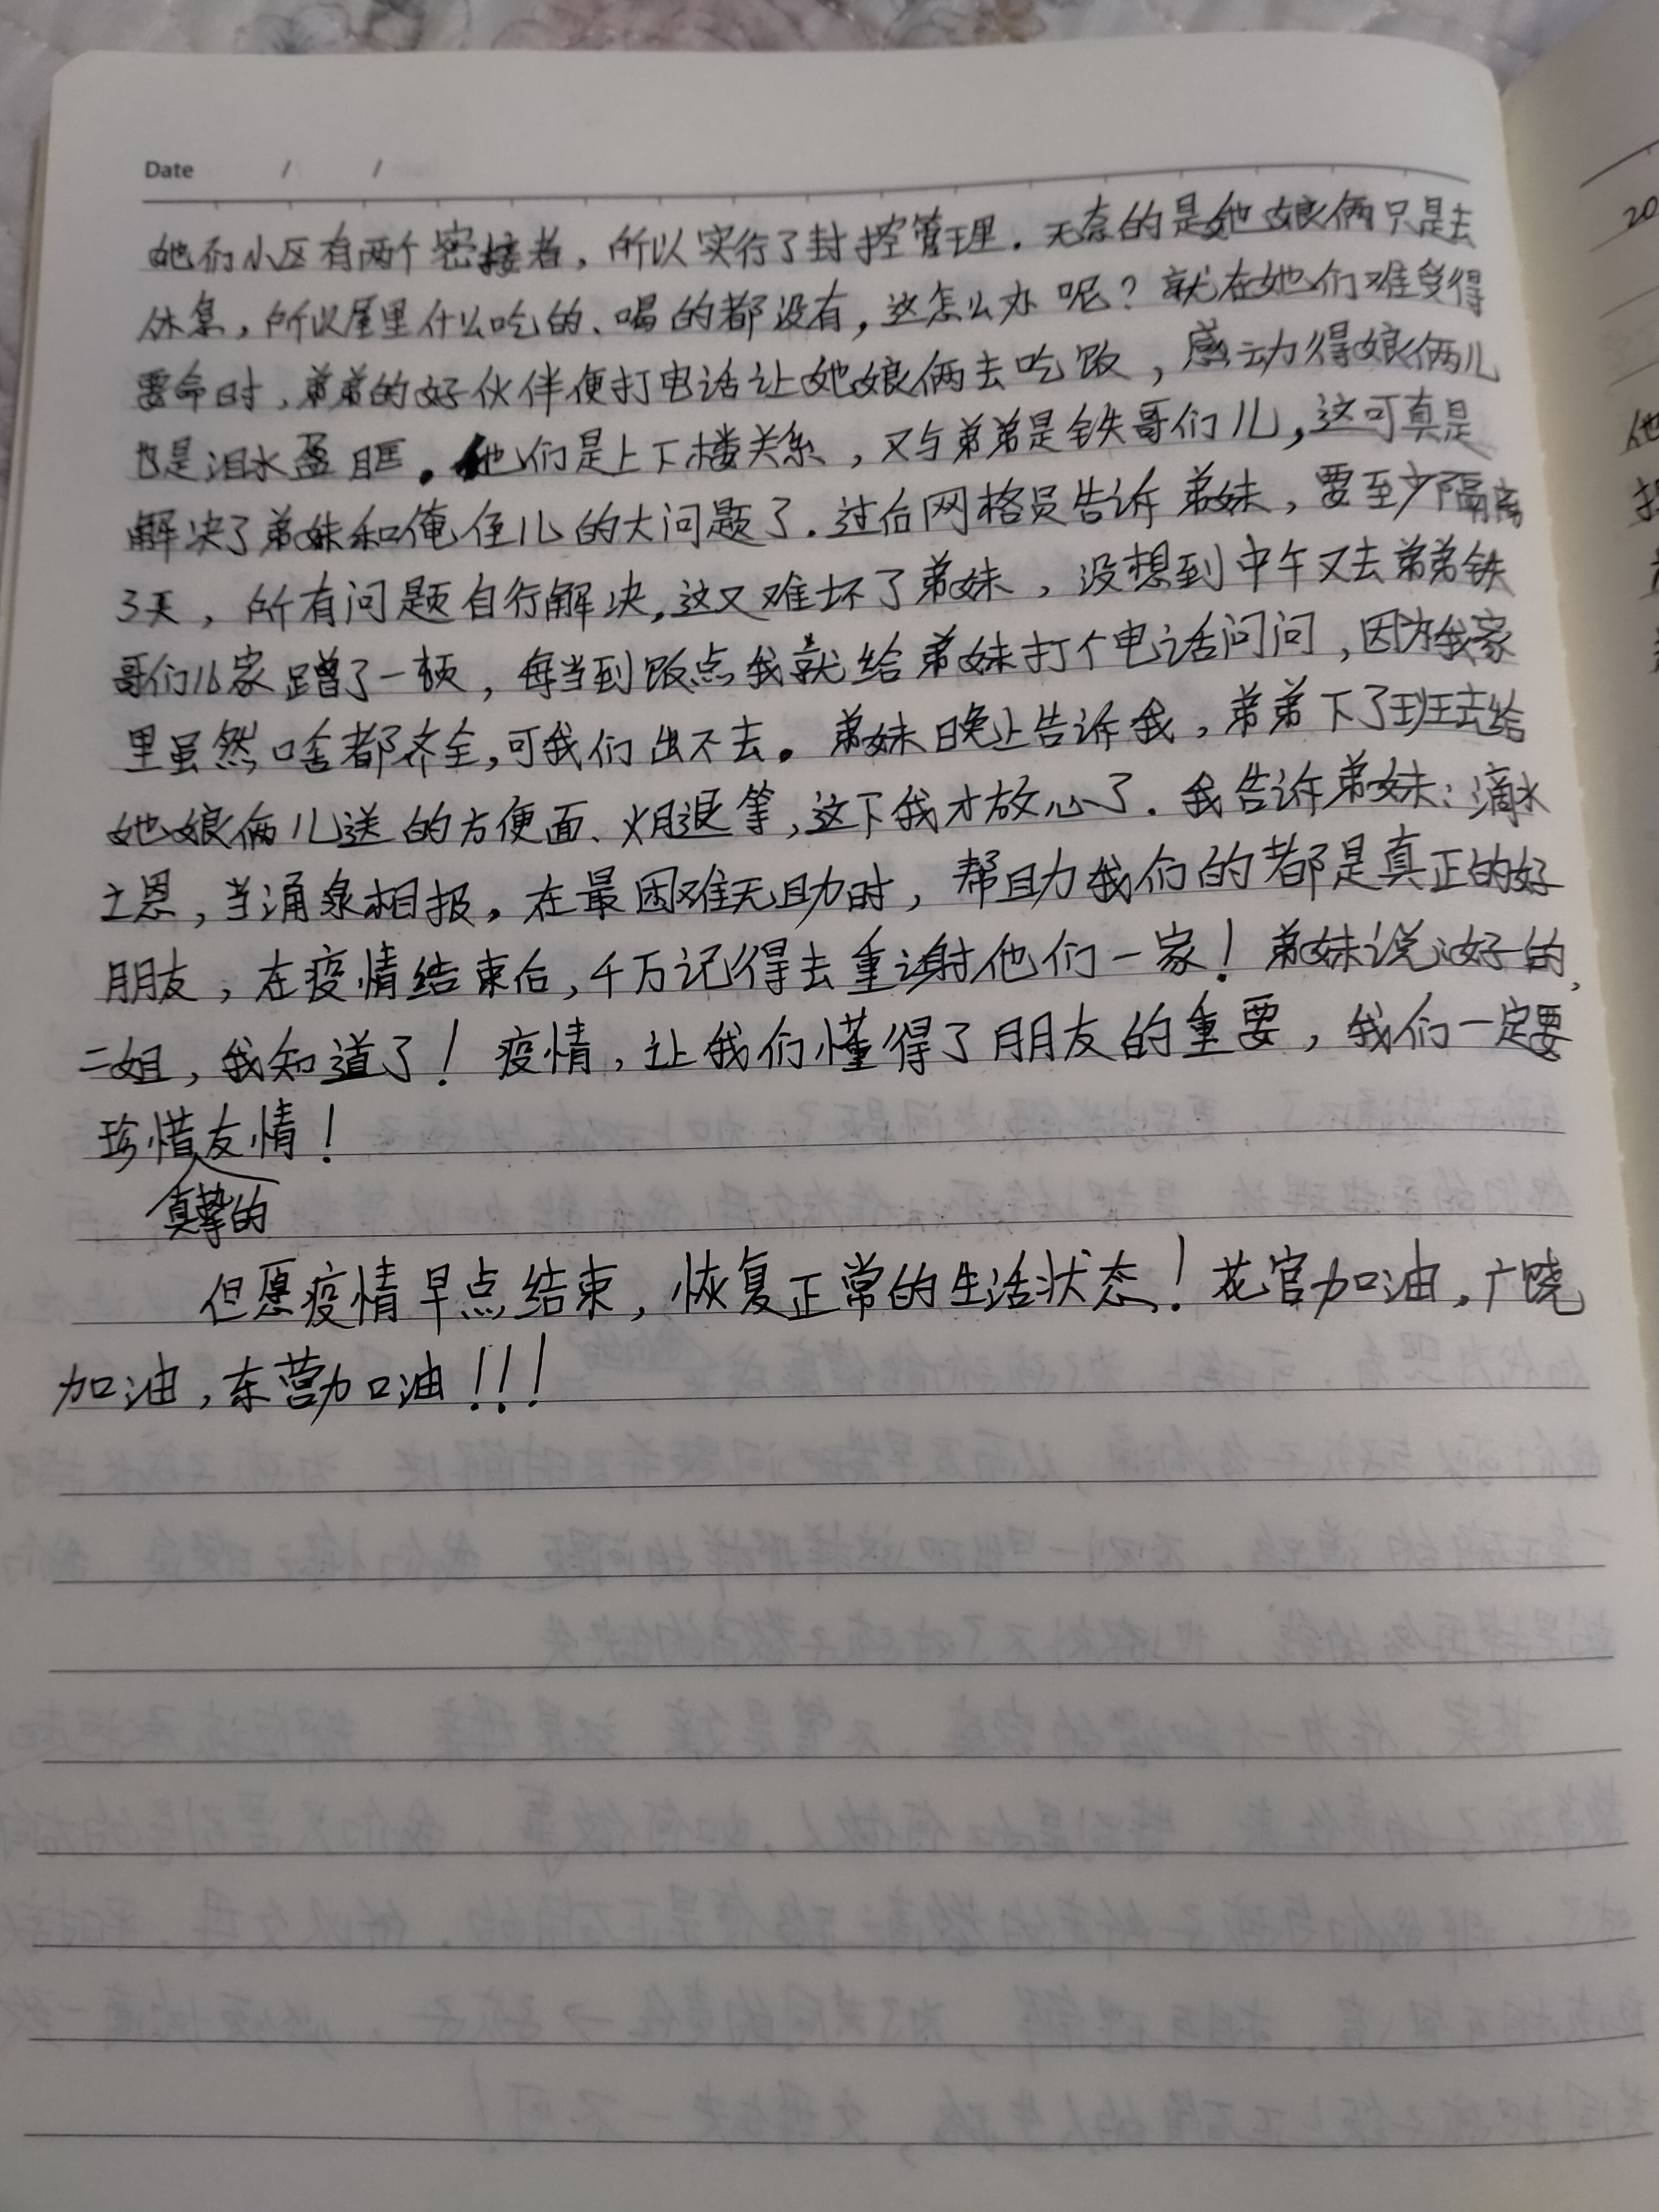 Date / /
她们小区有两个密接者，所以实行了封控管理．无奈的是她娘俩只是去
休息，所以屋里什么吃的、喝的都没有，这怎么办呢？就在她们难受得
要命时，弟弟的好伙伴便打电话让她娘俩去吃饭，感动得娘俩儿
也是泪水盈眶。他们是上下楼关系，又与弟弟是铁哥们儿，这可真是
解决了弟妹和俺侄儿的大问题了．过后网格员告诉弟妹，要至少隔离
3天，所有问题自行解决，这又难坏了弟妹，没想到中午又去弟弟铁
哥们儿家蹭了一顿，每当到饭点我就给弟妹打个电话问问，因为我家
里虽然啥都齐全，可我们出不去。弟妹晚上告诉我，弟弟下了班去给
她娘俩儿送的方便面、火腿等，这下我才放心了．我告诉弟妹：滴水
之恩，当涌泉相报。在最困难无助时，帮助我们的都是真正的好
朋友，在疫情结束后，千万记得去重谢他们一家！弟妹说：好的，
二姐，我知道了！疫情，让我们懂得了朋友的重要，我们一定要
珍惜友情！
真挚的
但愿疫情早点结束，恢复正常的生活状态！花官加油，广饶
加油，东营加油！！！
20
他